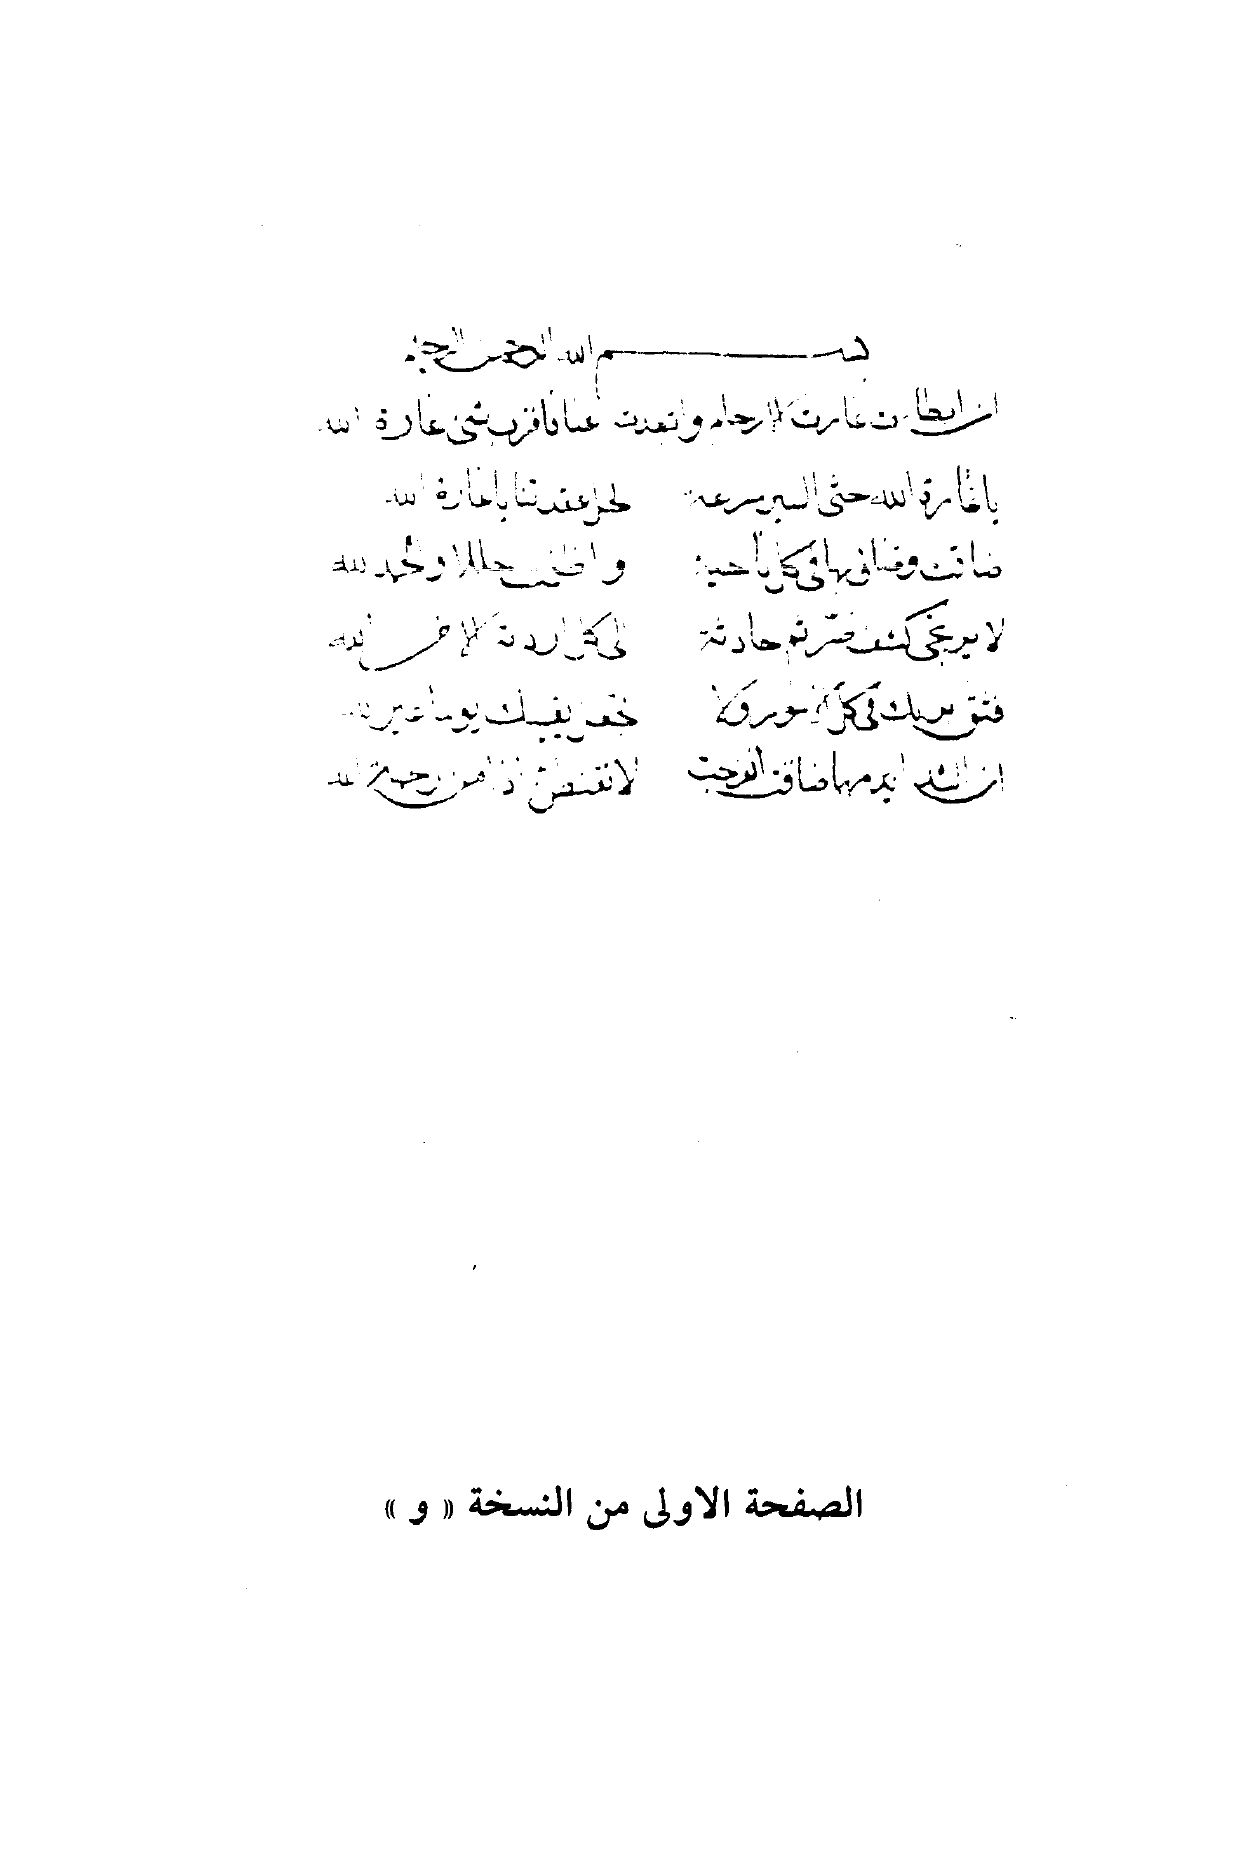 بسم الله الرحمن الرحيم
ان ابطات غارت الارحام وابتعدت عنا فاقرب شئ غارة الله
ياغارة الله حثى السير مسرعة لحل عقدتنا ياغارة الله
ضاقت وضاق بها فى كل ناحية والحمد لله
لا يرتجى كشف ضر ثم حادثة فى كل الا من الله
فثق بربك فى كل الامور ولا يوما غير لله
ان الشدايد مهما ضاقت انفرجت لا تقنطن اذا من رحمة الله
الصفحة الاولى من النسخة « و »